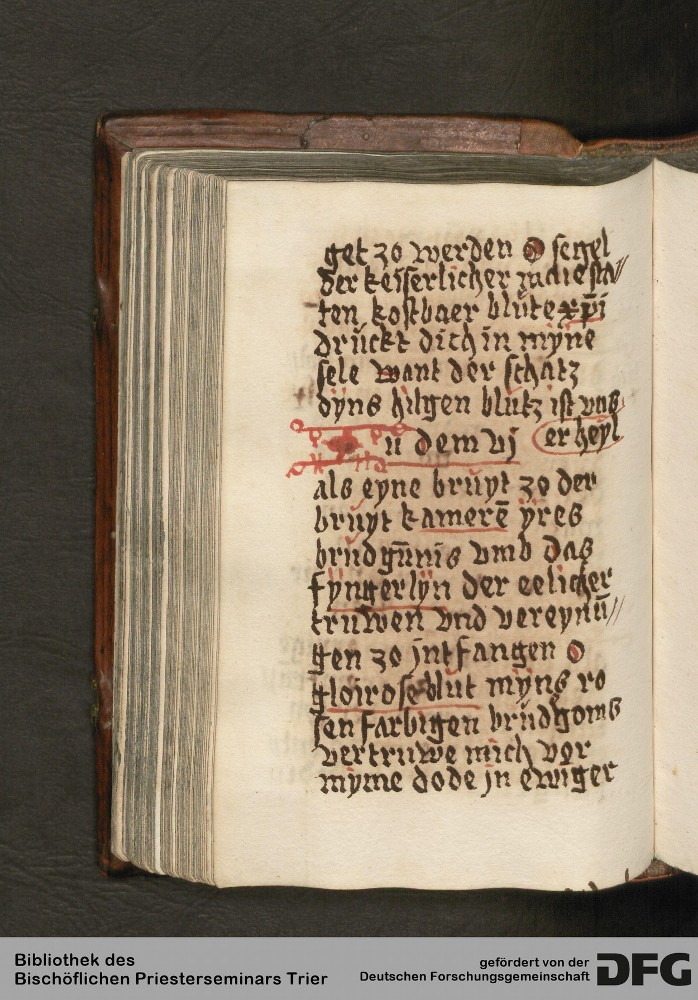 get zo werden O segel
der keiserlicher maiesta//
ten kostbaer blute xp̄i
druckt dich in myne
sele want der schatz
dyns hilgen blutz ist vns
er heyl
Zu dem vj
als eyne bruyt zo der
bruyt kamerē yres
brudgūnis vmb das
fyngerlyn der eelicher
truwen vnd vereynū//
gen zo jntfangen O
gloirose blut myns ro
sen farbigen brudgoms
vertruwe mich vor
myme dode jn ewiger
Bibliothek des
Bischöflichen Priesterseminars Trier
gefördert von der
Deutschen Forschungsgemeinschaft
DFG